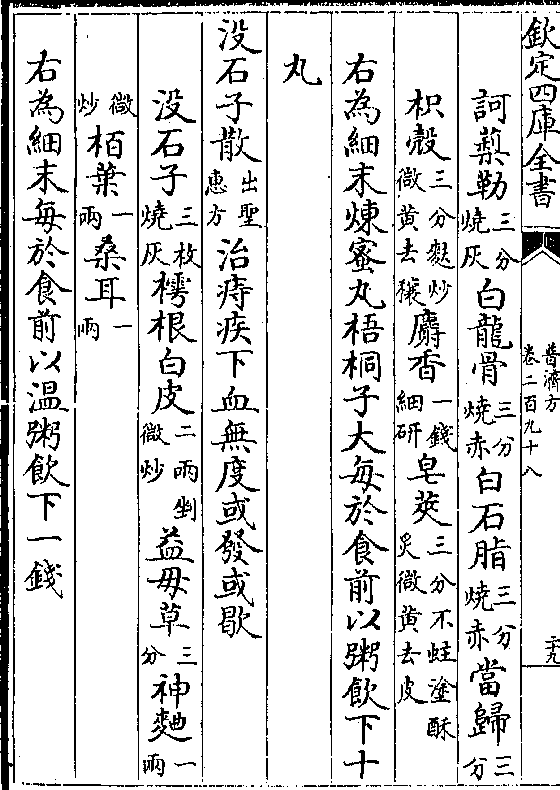 欽定四庫全書
普濟方
卷二百九十八
二十九
訶藜勒三分燒灰白龍骨三分燒赤白石脂三分燒赤當歸三分
枳殼三分麩炒微黄去穰麝香一錢細研皂莢三分不蛀塗酥炙微黄去皮
右為細末煉蜜丸梧桐子大每於食前以粥飲下十
丸
没石子散出聖惠方治痔疾下血無度或發或歇
没石子三枚燒灰樗根白皮二兩剉微炒益母草三分神麯一兩
微炒栢葉一兩桑耳一兩
右為細末每於食前以温粥飲下一錢